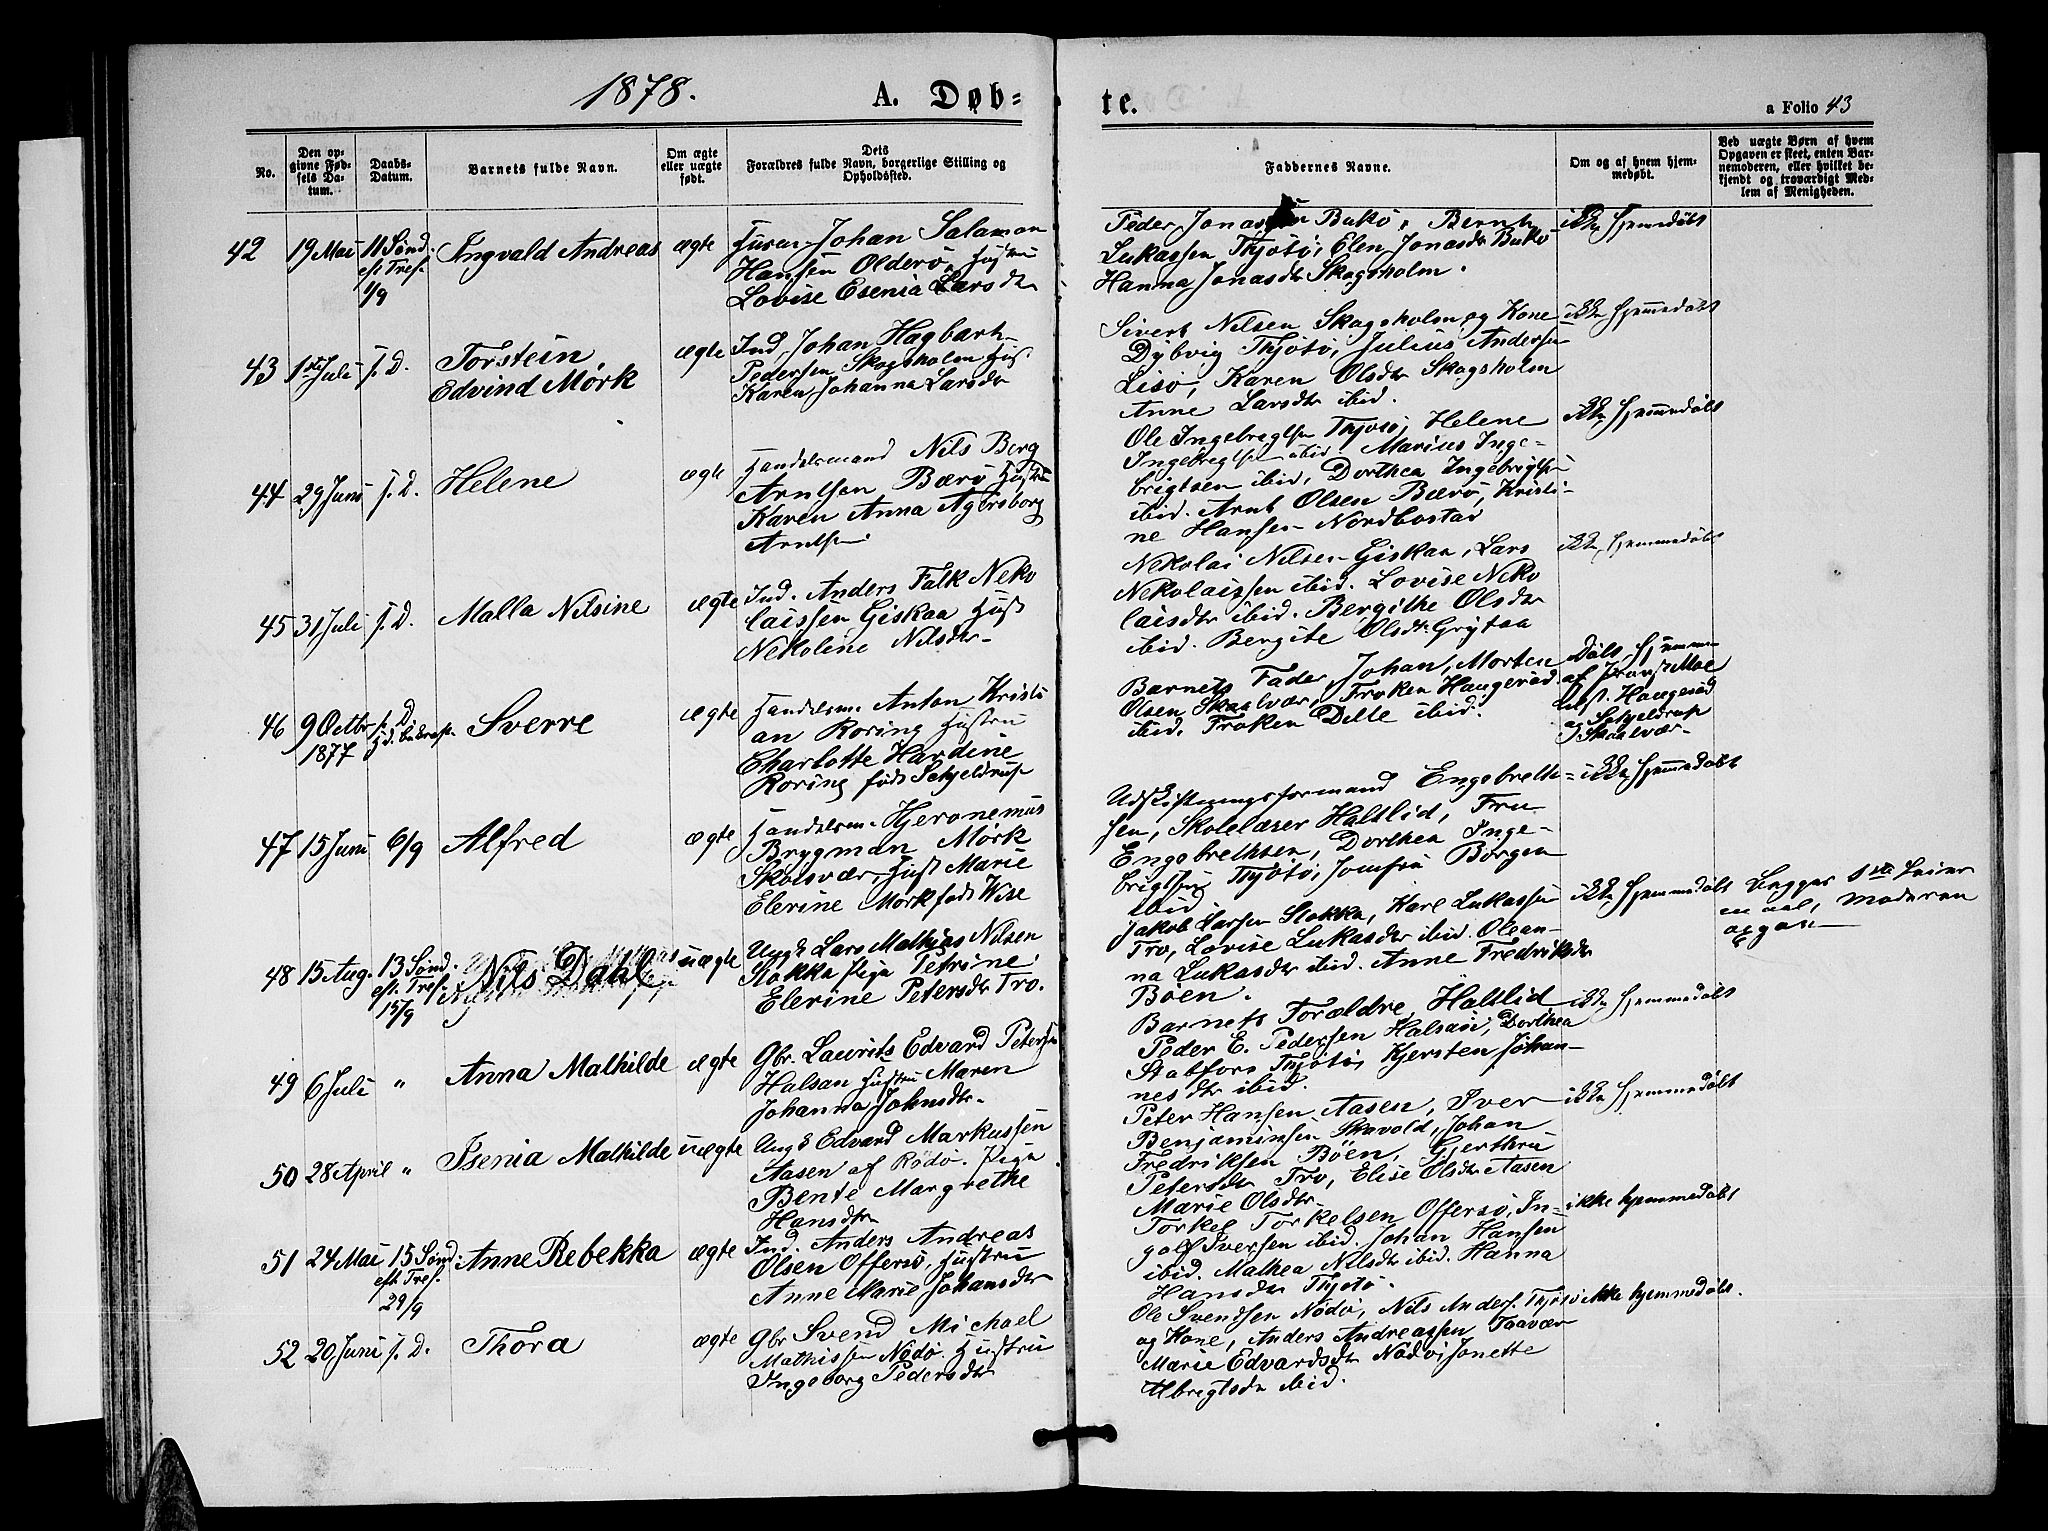 1878.
A. Døb=
te.
a Folio 43
No.
Den op-
givne Fød-
sels Da-
tum.
Daabs-
Datum.
Barnets fulde Navn.
Om ægte
eller uægte
født.
Dets
Forældres fulde Navn, borgerlige Stilling og
Opholdssted.
Faddernes Navne.
Om og af hvem hjem-
medøbt.
Ved uægte Børn af hvem
Opgaven er skeet, enten Bar-
nemoderen, eller hvilket be-
kjendt og troværdigt Med-
lem af Menigheden.
42
19 Mai
11 Sønd.
eft. Tref.
1/9
Ingvald Andreas
ægte
Husm. Johan Salamon
Hansen Olderø, Hustru
Lovise Esenia Larsdtr
Peder Jonassen Bukø, Bernt
Lukassen Thjøtø, Elen Jonasdtr Bukø
Hanna Jonasdtr Skogsholm.
ikke hjemmedøbt
43
1ste Juli
s. D.
Torstein
Edvind Mørk
ægte
Ind. Johan Hagbart
Pedersen Skogsholm Hust
Karen Johanna Larsdtr
Sivert Nilsen Skogsholm og Kone
Dybvig Thjøtø, Julius Andersen
Lisø, Karen Olsdtr Skogsholm
Anne Larsdtr ibid.
ikke hjemmedøbt
44
29 Juni
s. D.
Helene
ægte
Handelsmand Nils Berg
Arntsen Bærø Hustru
Karen Anna Agersborg
Arntsen.
Ole Ingebregtsen Thjøtø, Helene
Ingebregtsen ibid Marius Inge-
brigtsen ibid, Dorthea Ingebrigtsen
ibid. Arnt Olsen Bærø, Kristi-
ne Hansen Nordbostad
ikke hjemmedøbt
45
31 Juli
s. D.
Malla Nilsine
ægte
Ind. Anders Falk Neko
laissen Giskaa Hust
Nekoline Nilsdtr-
Nekolai Nilsen Giskaa, Lars
Nekolaissen ibid. Lovise Neko
laisdtr ibid. Bergithe Olsdtr
ibid. Bergite Olsdtr Grytaa
ikke hjemmedøbt
46
9 Octbr
1877
s. D.
Sverre
ægte
Handelsm. Anton Kristi
an Roring Hustru
Charlotte Hardine
Roring født Schjeldrup
Barnets Fader, Johan, Morten
Olsen Skaalvær, Frøken Haugerød
ibid. Frøken Dette ibid.
døbt, hjemme
af Provst Moe
Haugerød
og Schjeldrup
Skaalvær-
47
15 Juni
6/9
Alfred
ægte
Handelsm. Hjeronemus
Brygman Mørk
Skaalsvær, Hust Marie
Elerine Mørk født Wise
Udskiftningsformand Engebreth=
sen, Skolelærer Haltlid, Fru
Engebrethsen, Dorthea Inge-
brigtsen Thjøtø, Jomfru Borgen
ibid.
ikke hjemmedøbt
48
15 Aug.
13 Sønd.
eft. Tref.
15/9
Nils Dahl
uægte
Ungk Lars Mathias Nilsen
Stokka Pige Petrine
Elerine Petersdtr Tro.
Jakob Larsen Stokka, Karl Lukassen
Tro, Lovise Lukasdtr ibid. Olean-
na Lukasdtr ibid. Anne Fredriksdtr
Bøen.
ikke hjemmedøbt
Begges 1ste Leier
maal, Moderen
opgav.-
49
6 Juli
"
Anna Mathilde
ægte
Gbr. Laurits Edvard Petersen
Halsan Hustru Maren
Johanna Johnsdtr-
Barnets Forældre, Haltlid
Peder E. Pedersen Halsøi, Dorthea
Stabfors Thjøtø, Kjersten Johan-
nesdtr ibid.
ikke hjemmedøbt
50
28 April
"
Isenia Mathilde
uægte
Ungk Edvard Markussen
Aasen af Rødø. Pige
Bente Margrethe
Hansdtr
Peter Hansen Aasen, Iver
Benjaminsen Skavold, Johan
Fredriksen Bøen, Gjerthru
Petersdtr Tro, Elise Olsdtr Aasen
Marie Olsdtr
ikke hjemmedøbt
51
24 Mai
15 Sønd.
eft. Tref.
29/9
Anne Rebekka
ægte
Ind. Anders Andreas
Olsen Offersø, Hustru
Anne Marie Johansdtr
Torkel Torkelsen Offersø, In-
golf Iversen ibid. Johan Hansen
ibid. Mathea Nilsdtr ibid. Hanna
Hansdtr Thjøtø.
ikke hjemmedøbt
52
20 Juni
s. D.
Thora
ægte
Gbr Svend Michael
Mathissen Nødø. Hustru
Ingeborg Pedersdtr
Ole Svendsen Nødø, Nils Anders. Thjøtø
og Kone, Anders Andreassen Taavær
Marie Edvardsdtr Nødø, Jonette
Albregtsdtr ibid.
ikke hjemmedøbt.